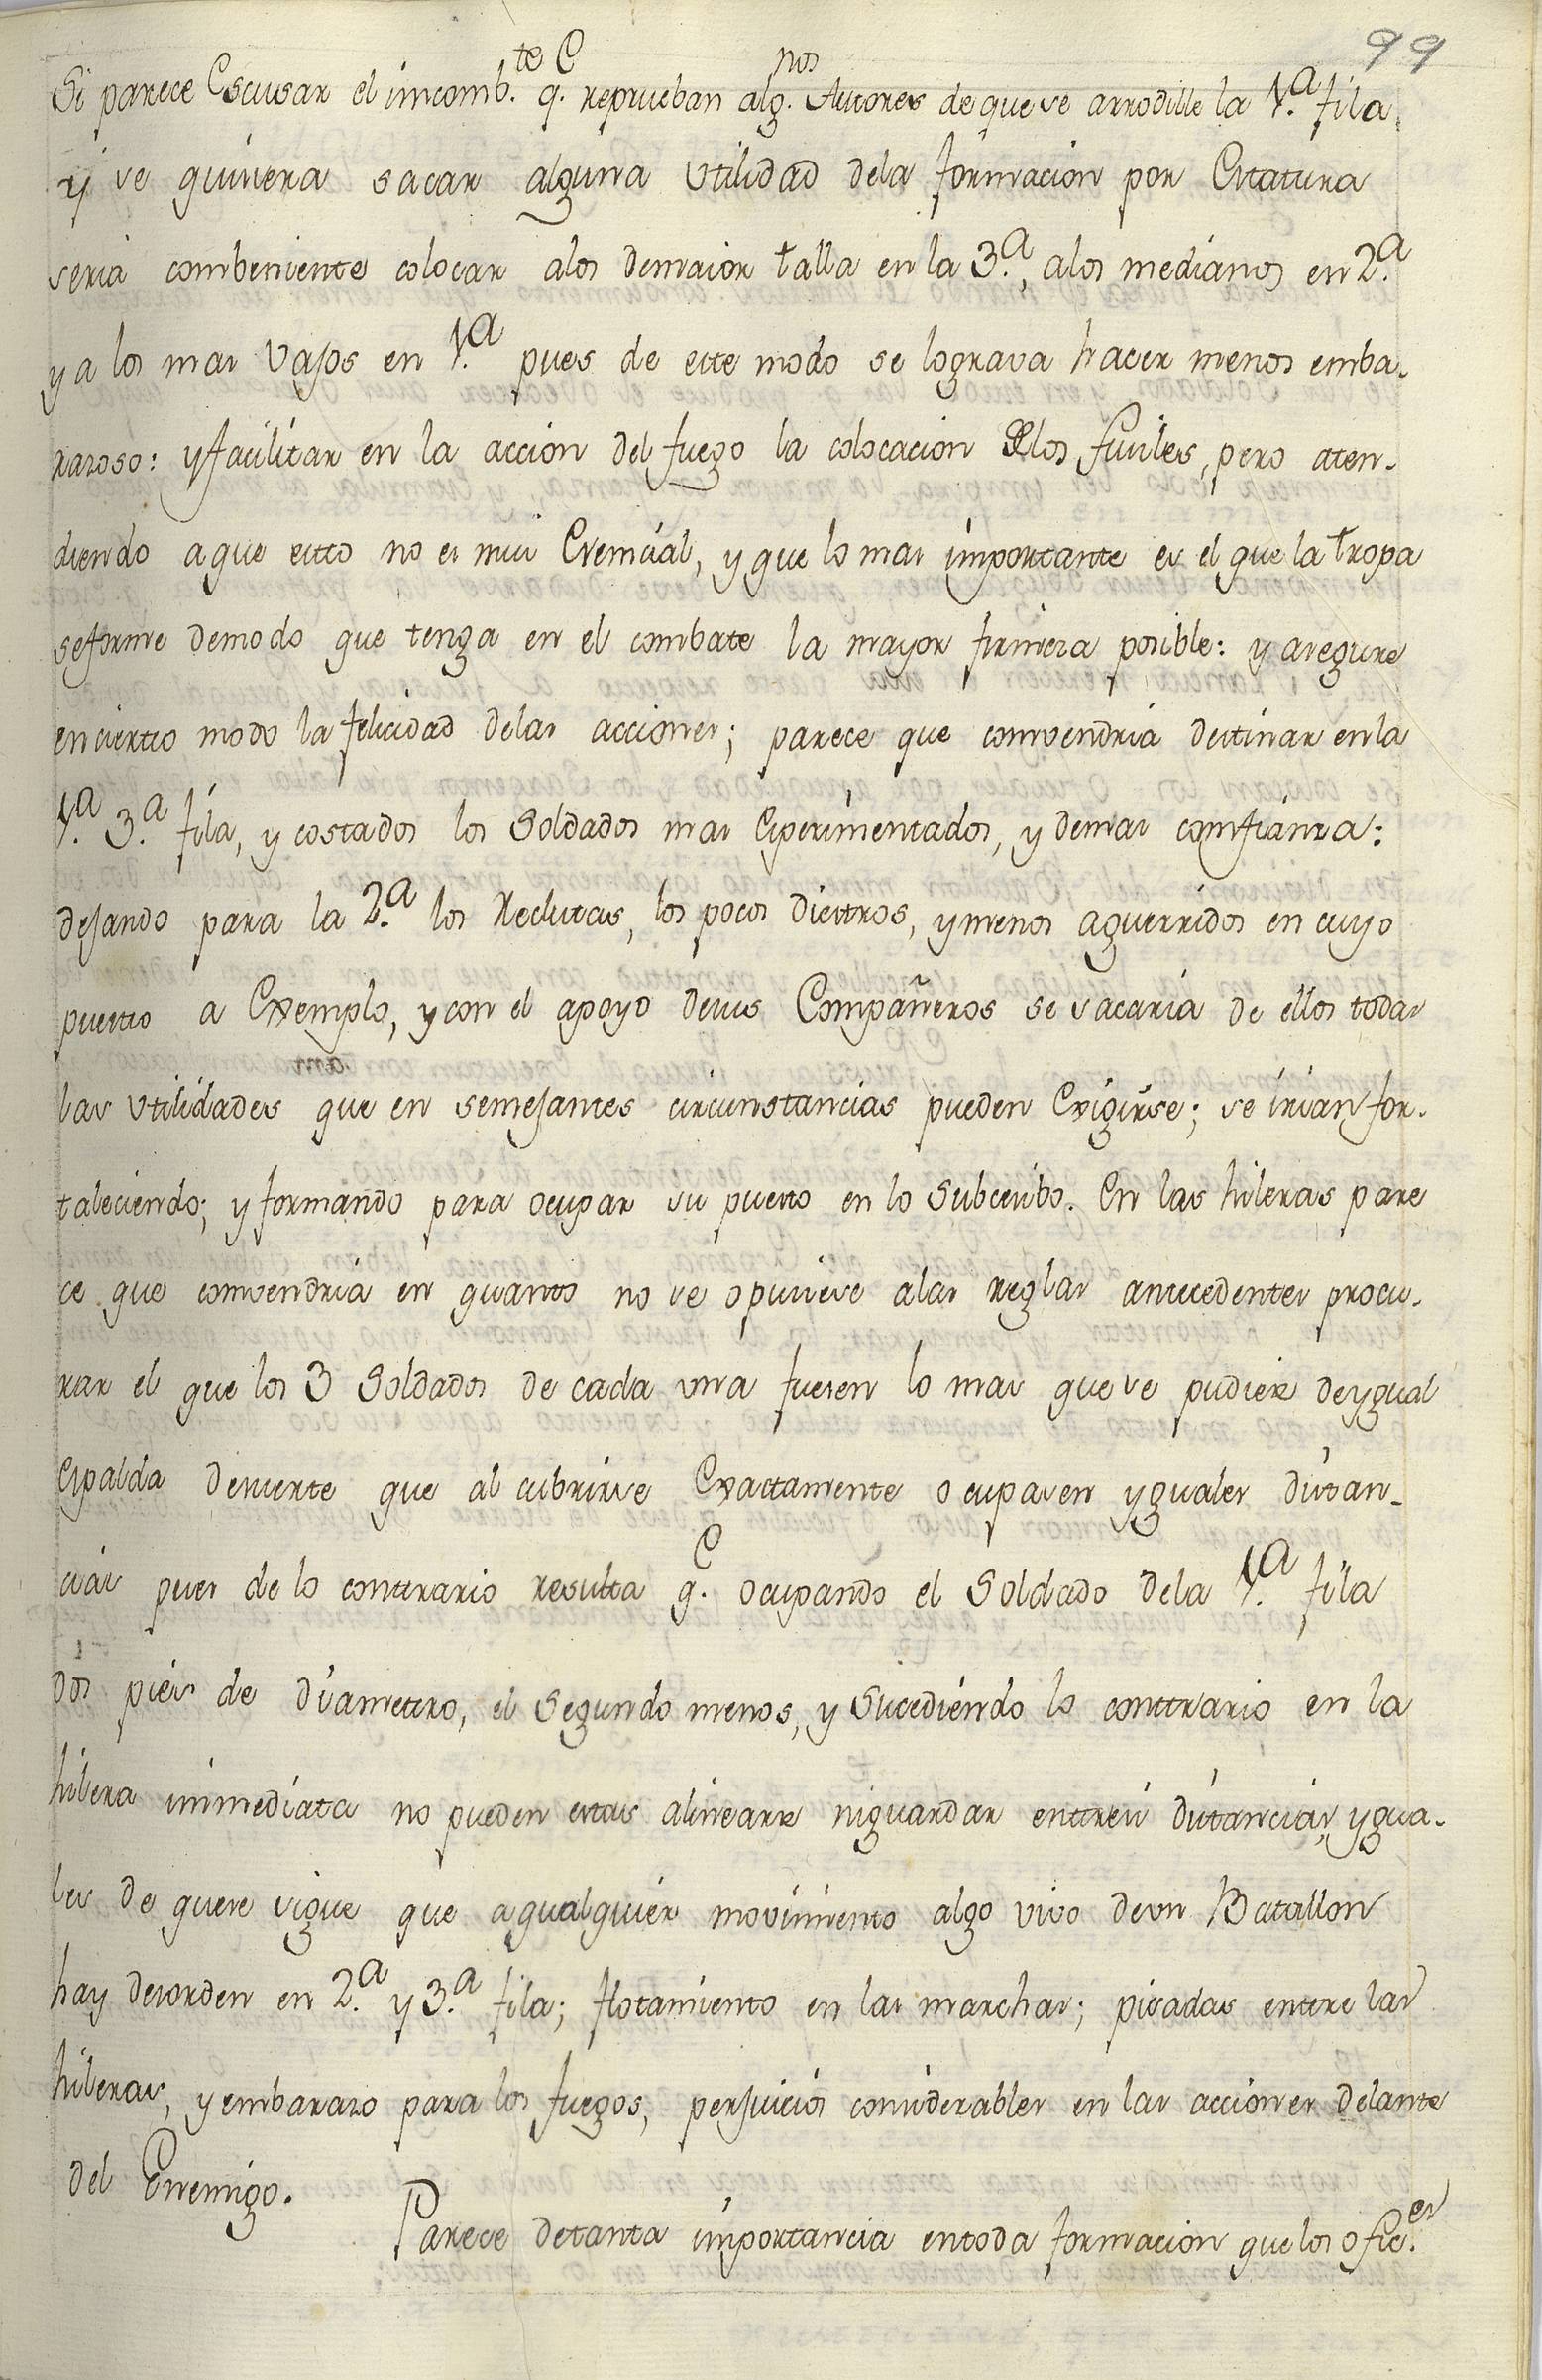 99
Si parece Escusar el incomb.te q.e reprueban alg.nos Autores de que se arrodille la 1.a fila
y se quisiera sacar alguna utilidad dela formacion por Estatura
seria combeniente colocar alos demaior talla en la 3.a, alos medianos en 2.a
y a los mas vajos en 1.a pues de este modo se lograva hacer menos emba-
razoso: y facilitar en la acción del fuego la colocacion Delos fusiles, pero aten-
diendo a que esto no es mui Esencial, y que lo mas importante es el que la tropa
se forme demodo que tenga en el combate la mayor firmeza posible: y asegure
en cierto modo la felicidad delas acciones; parece que convendria destinar enla
1.a 3.a fila, y costados los Soldados mas Esperimentados, y demas comfianza:
dejando para la 2.a los Reclutas, los pocos diestros, y menos aguerridos en cuyo
puesto a Exemplo, y con el apoyo desus Compañeros se sacaria de ellos todas
las utilidades que en semejantes circunstancias pueden Exigirse; se irian for-
taleciendo; y formando para ocupar su puesto en lo Subcesibo. En las hileras pare
ce que convendria en quanto no se opusiese alas reglas antecedentes procu-
rar el que los 3 Soldados de cada una fuesen lo mas que se pudiese de ygual
Espalda desuerte que al cubrirse Exactamente ocupasen yguales distan-
cias pues de lo contrario resulta q.e ocupando el Soldado dela 1.a fila
dos pies de diametro, el Segundo menos, y Sucediendo lo contrario en la
hilera immediata no pueden estas alinearse niguardar entresi distancias ygua-
les de quese sigue que a qualquier movimiento algo vivo deun Batallon
hay desorden en 2.a y 3.a fila; flotamiento en las marchas; pisadas entre las
hileras, y embarazo para los fuegos, perjuicios considerables en las acciones delante
del Enemigo.
Parece detanta importancia entoda formacion que los ofic.es